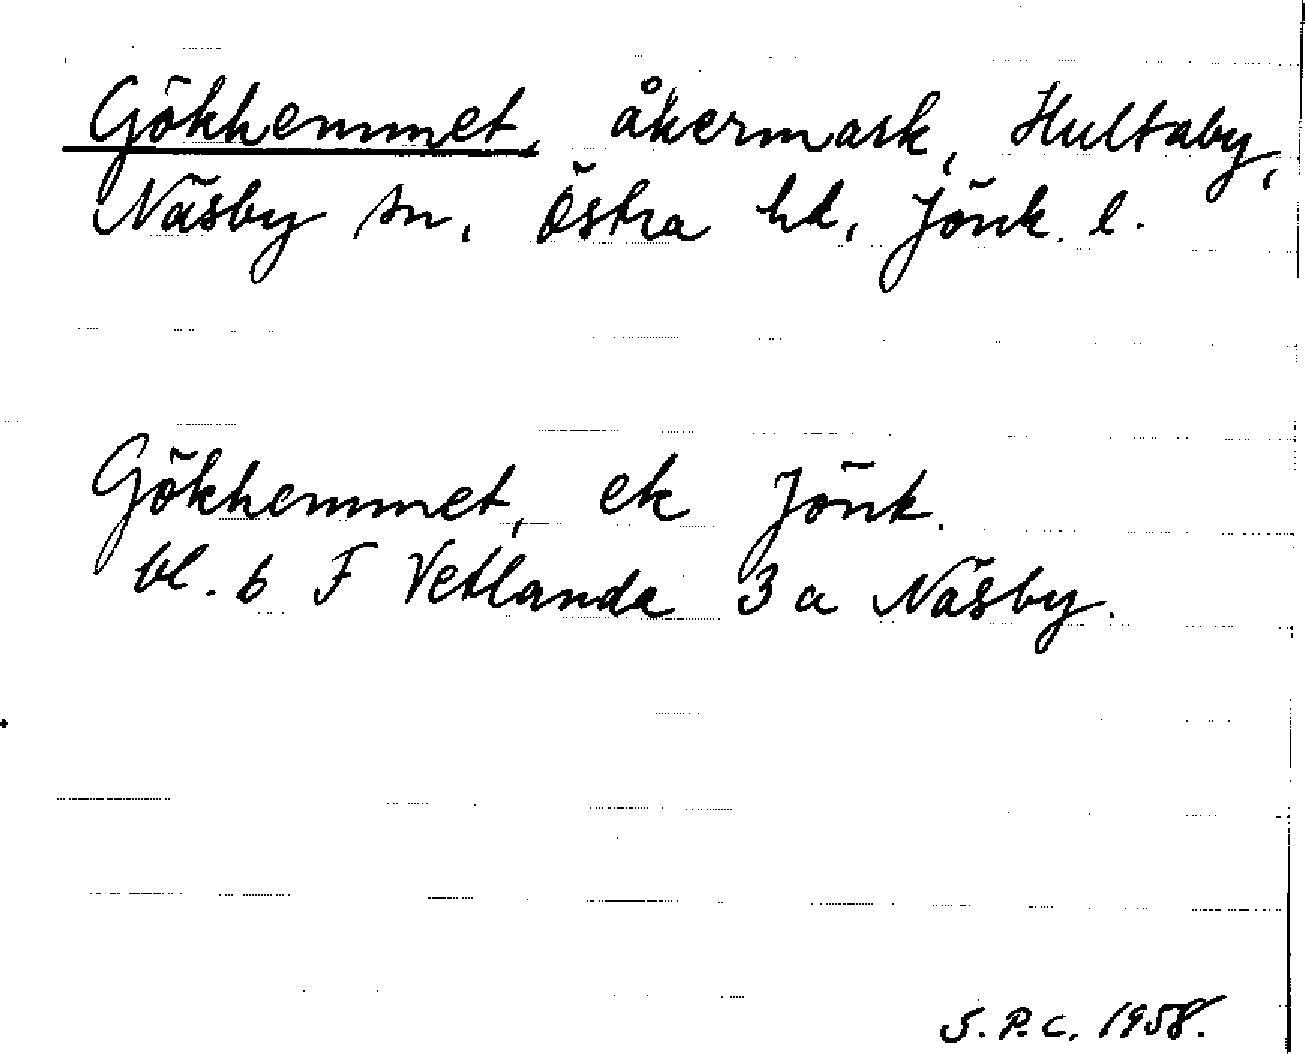 Gökhemmet, åkermark, Hultaby,
Näsby sn, Östra hd, Jönk. l.
Gökhemmet, ek Jönk.
bl. 6 F Vetlanda 3 a Näsby.
S.P.C. 1958.